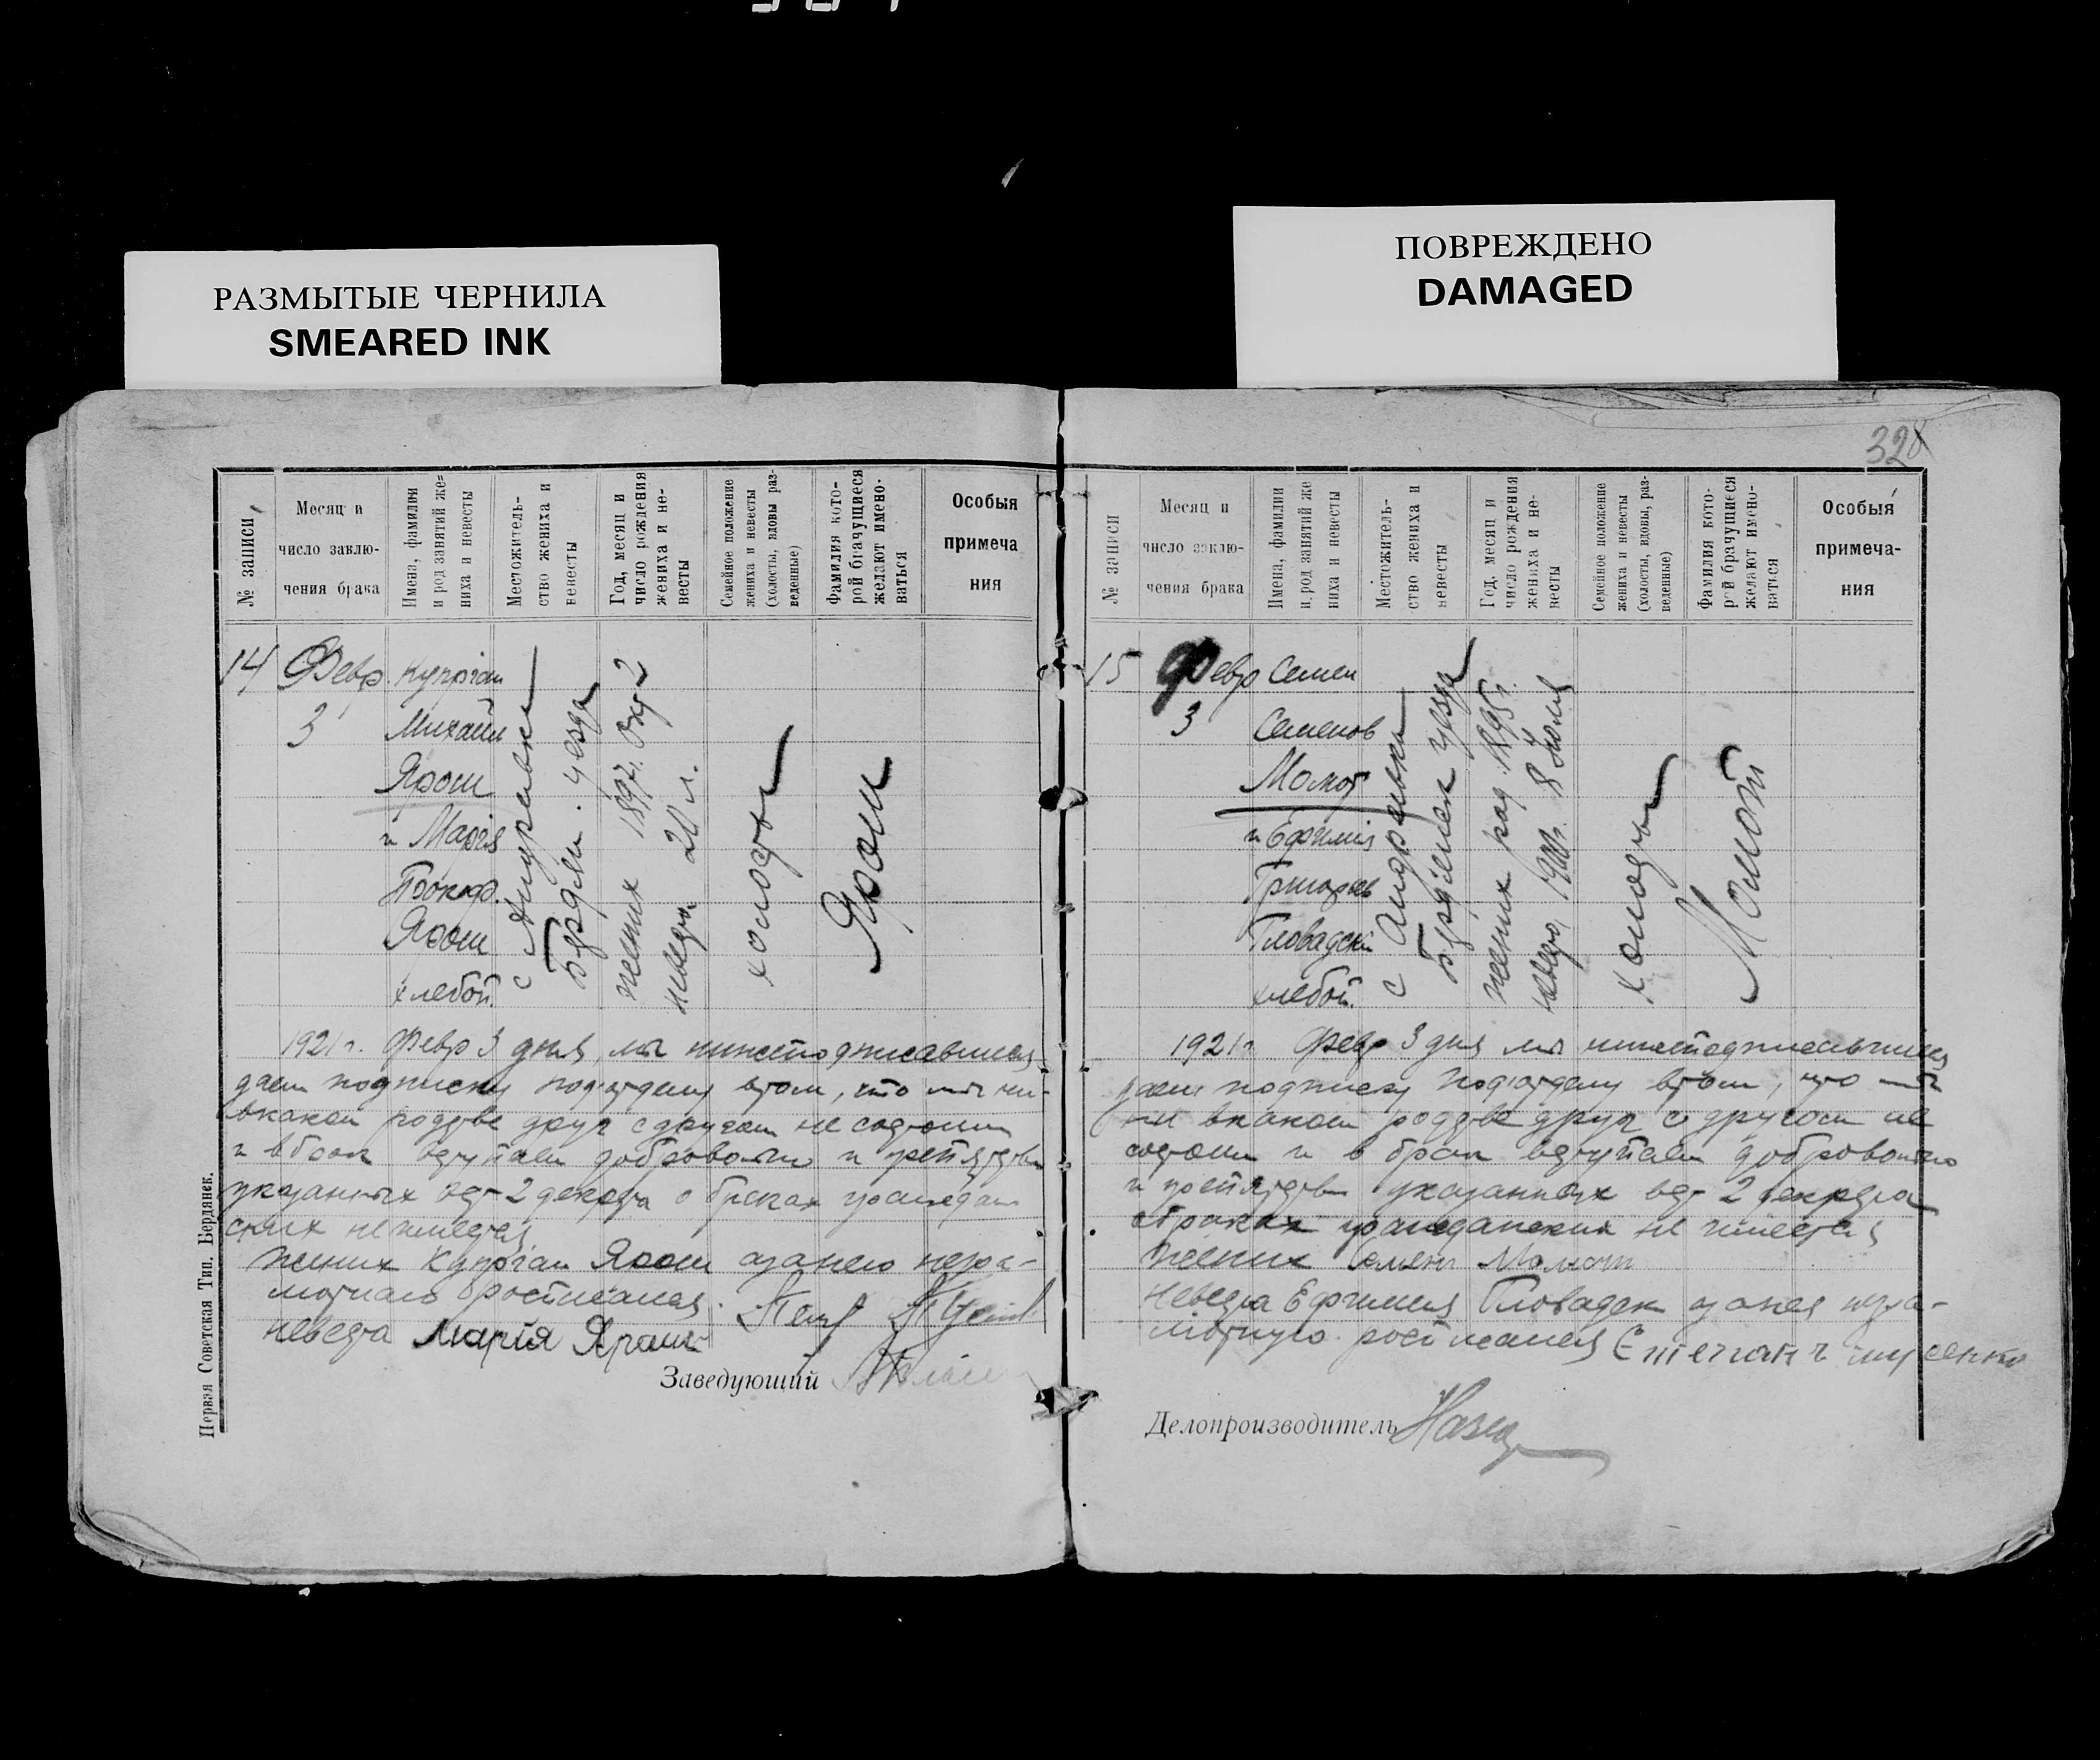 РАЗМЫТЫЕ ЧЕРНИЛА
SMEARED INK
ПОВРЕЖДЕНО
DAMAGED
№ записи
Месяц и
число заклю-
чения брака
Имена, фамилии
и род занятий же-
ниха и невесты
Местожитель-
ство жениха и
невесты
Год, месяц и
число рождения
жениха и не-
весты
Семейное положение
жениха и невесты
(холосты, вдовы раз-
веденные)
Фамилия кото-
рой брачущиеся
желают имено-
ваться
Особыя
примеча
ния
14
Февр.
3
Купріан
Михаил
Ярош
и Марія
Прокоф.
Ярош
хлебоп.
с Андреевки
Бердян. уезда
жених 1897г. Окт 2
невеста 20 л.
холосты
Ярош
1921 г. Февр 3 дня, мы нижеподписавшиеся
даем подписку подотделу втом, что мы ни
вкаком родстве друг с другом не состоим
и вбрак вступаем добровольно и препятстви
указанных вст 2 декрета о браках граждан
ских не имеется
Жених Купріан Ярош азанего негра-
мотнаго росписался
невеста Марія Ярош
Заведующий
Первая Советская Тип. Бердянск.
328
№ записи
Месяц и
число заклю-
чения брака
Имена, фамилии
и род занятий же
ниха и невесты
Местожитель-
ство жениха и
невесты
Год, месяц и
число рождения
жениха и не-
весты
Семейное положение
жениха и невесты
(холосты, вдовы, раз-
веденные)
Фамилия кото-
рой брачущиеся
желают имено-
ваться
Особыя
примеча-
ния
15
Февр
3
Семен
Семенов
Момот
и Ефимія
Григорьев
Гловадски
хлебоп.
с Андреевки
Бердянск уезда
жених род. 1895г.
невеста 1900г. 8 Июля
холосты
Момот
1921 г Февр 3 дня мы нижеподписавшиеся
даем подписку подотделу втом, что мы
ни вкаком родстве друг с другом не
состоим и в брак вступаем добровольно
и препятстви указанных вст 2 декрета
о браках гражданских не имеется
жених Семен Момот
Невеста Ефимия Гловадск азанея негра-
мотную росписался Степан
Делопроизводитель